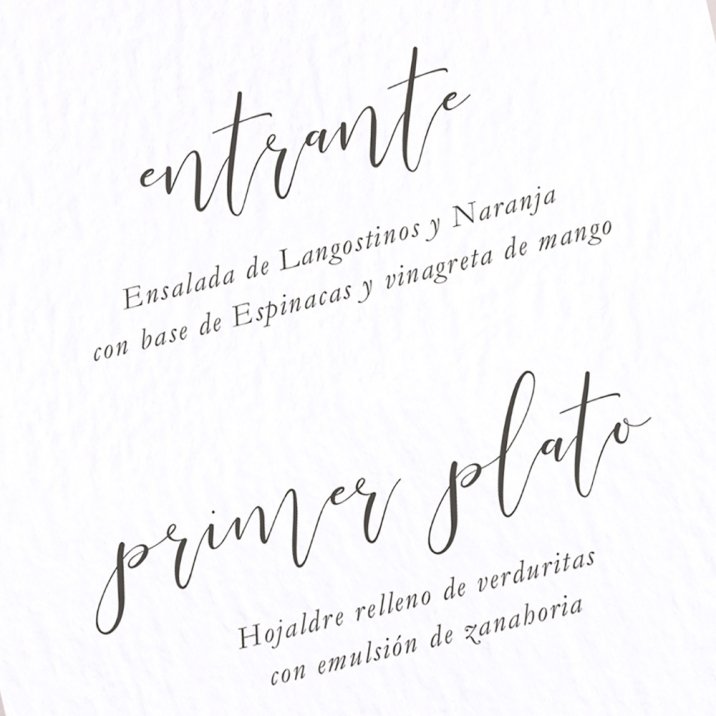 entrante
Ensalada de Langostinos y Naranja
con base de Espinacas y vinagreta de mango
primer plato
Hojaldre relleno de verduritas
con emulsión de zanahoria